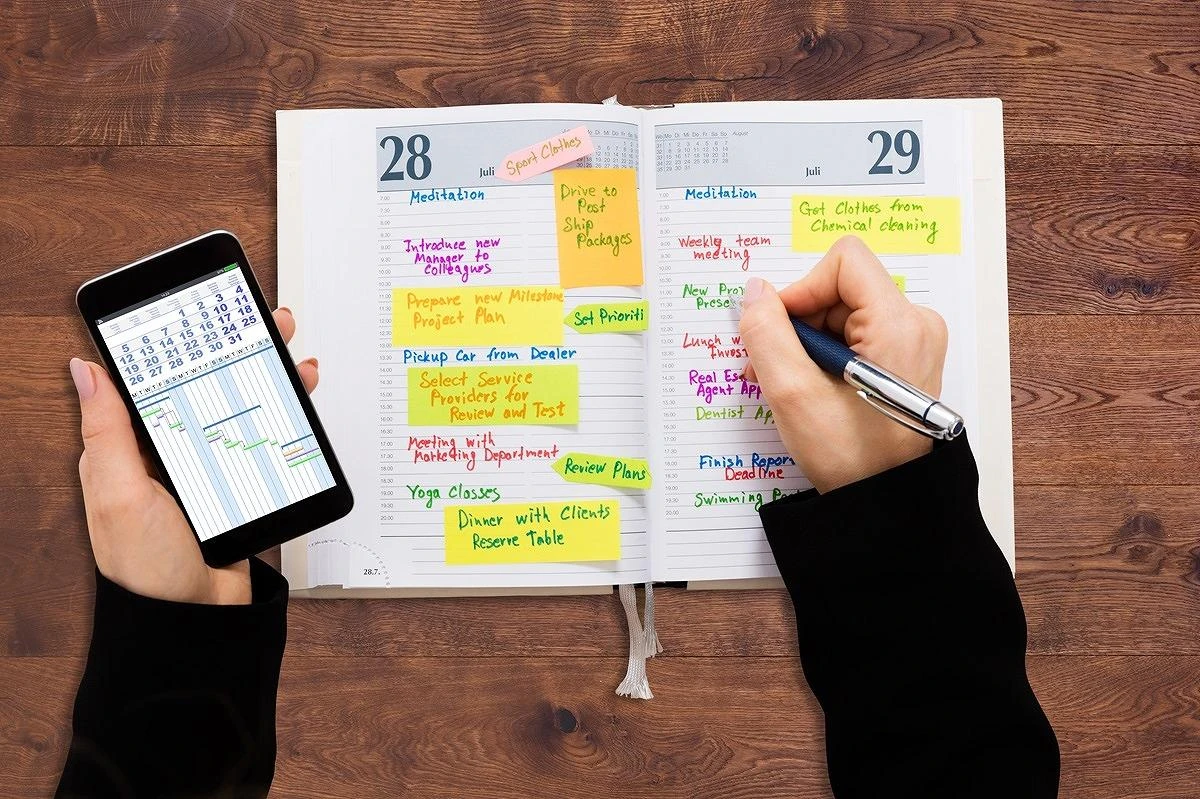 28
Juli
Sport Clothes
Meditation
Drive to
Post
Ship
Packages
Introduce new
Manager to
Colleagues
Prepare new Milestone
Project Plan
Set Prioriti
Pickup Car from Dealer
Select Service
Providers for
Review and Test
Meeting with
Marketing Department
Review Plans
Yoga Classes
Dinner with Clients
Reserve Table
28.7.
August
29
Juli
Meditation
Get Clothes from
Chemical cleaning
Weekly team
meeting
New
Lunch
Real
Agent
Dentist
Finish Report
Deadline
Swimming
1 2 3 4
5 6 7 8 9 10 11
12 13 14 15 16 17 18
19 20 21 22 23 24 25
26 27 28 29 30 31